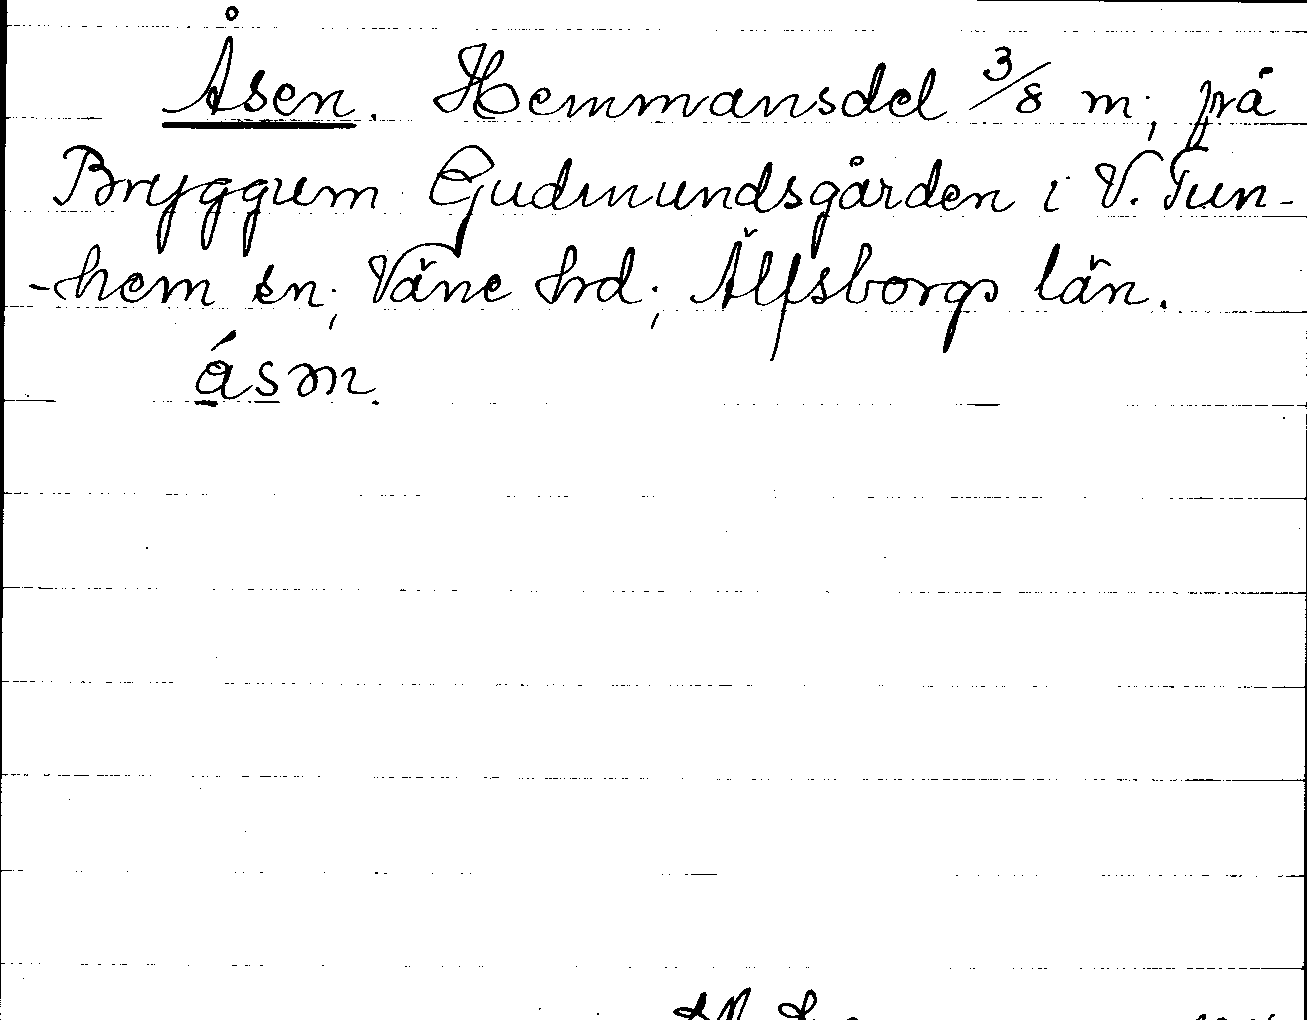 Åsen. Hemmansdel 3/8 m; på
Bryggum Gudmundsgården i V. Tun-
-hem sn; Väne hrd; Älfsborgs län.
ásm.